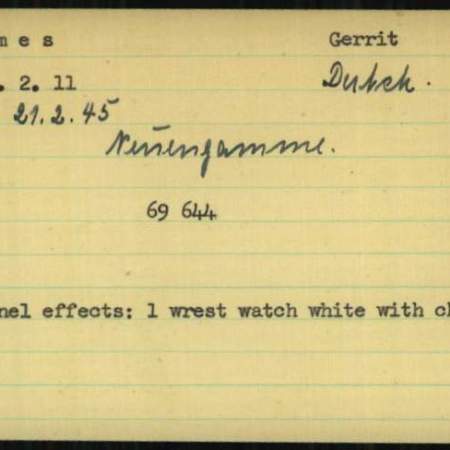 mes Gerrit
. 2. 11 Dutch.
21.2.45
Neuengamme.
69 644
nel effects: 1 wrest watch white with ch